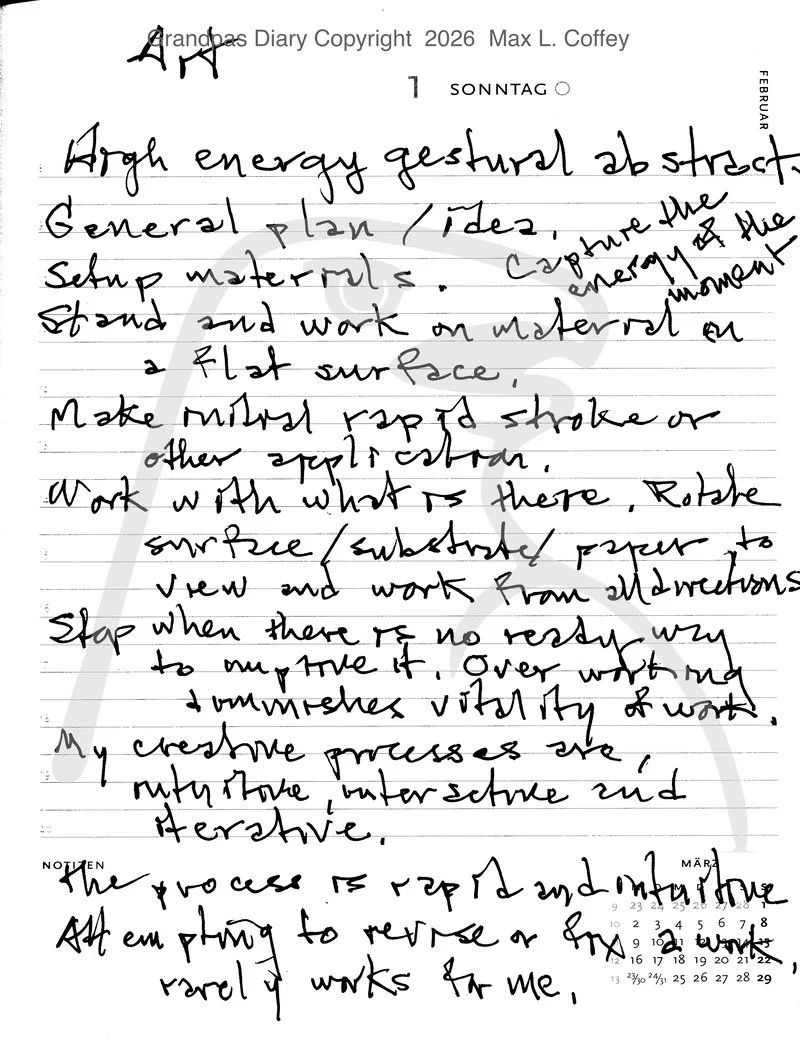 Grandpas Diary Copyright 2026 Max L. Coffey
Art
1 SONNTAG
FEBRUAR
High energy gestural abstract.
General plan / idea.
Capture the
energy of the
moment
Setup materials.
Stand and work on material on
a flat surface.
Make initial rapid stroke or
other application.
Work with what is there. Rotate
surface/substrate/paper to
view and work from all directions
Stop when there is no ready way
to improve it. Over working
diminishes vitality of work.
My creative processes are,
intuitive, interactive and
iterative.
NOTIZEN
MÄRZ
The process is rapid and intuitive
9 23 24 25 26 27 28 1
Attempting to revise or fix a work,
10 2 3 4 5 6 7 8
9 10 11 12 13 14 15
12 16 17 18 19 20 21 22
rarely works for me.
13 23/30 24/31 25 26 27 28 29